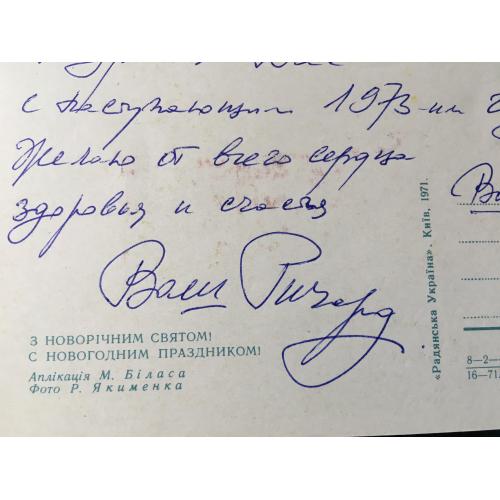 с наступающим 1973-им
Желаю от всего сердца
здоровья и счастья
Ваш Ричард
З НОВОРІЧНИМ СВЯТОМ!
С НОВОГОДНИМ ПРАЗДНИКОМ!
Аплікація М. Біласа
Фото Р. Якименка
«Радянська Україна». Київ, 1971.
8—2—
16—71